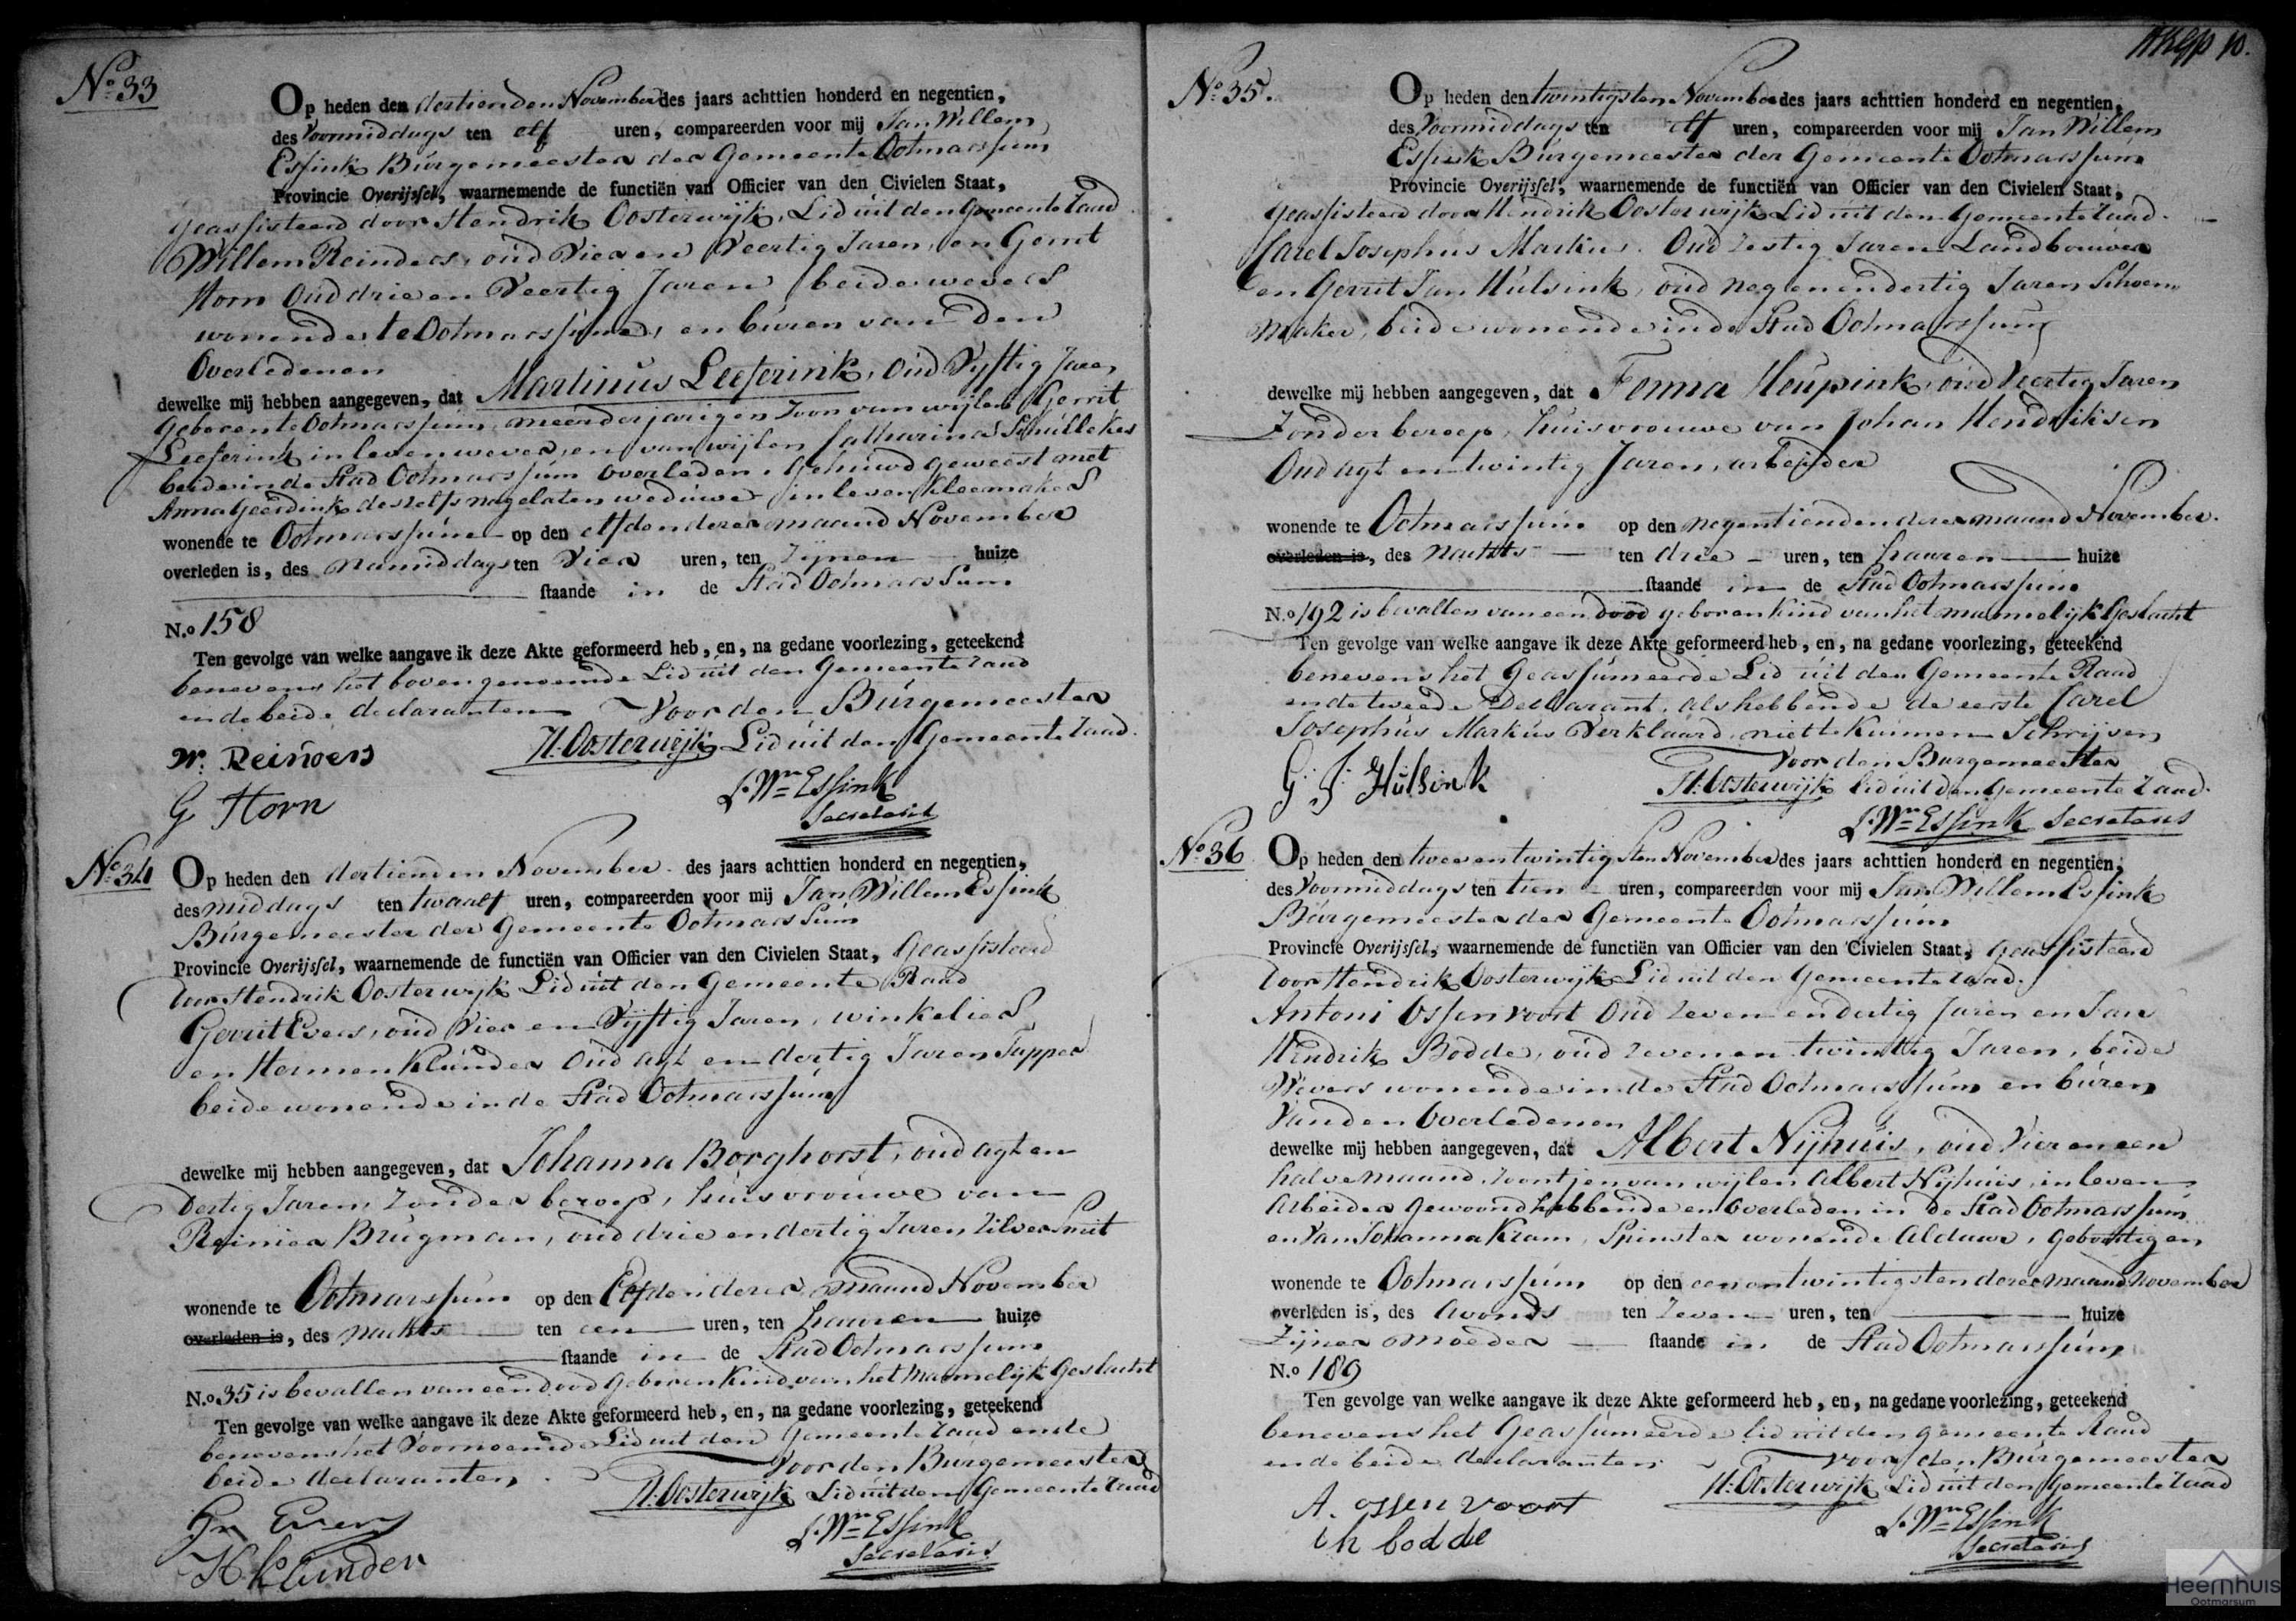 No. 33
Op heden den dertienden November des jaars achttien honderd en negentien,
des Voormiddags ten elf uren, compareerden voor mij Jan Willem
Essink Burgemeester der Gemeente Ootmarssum
Provincie Overijssel, waarnemende de functiën van Officier van den Civielen Staat,
geassisteerd door Hendrik Oosterwijk, Lid uit den Gemeente Raad
Willem Reinders, oud Vier en Veertig Jaren, en Gerrit
Horn Oud drie en Veertig Jaren beide wevers
wonende te Ootmarssum, en buren van den
Overledenen
dewelke mij hebben aangegeven, dat Martinus Leeferink, Oud Vyftig Jaren
Geboren te Ootmarssum, meerderjarigen Zoon van wijlen Gerrit
Leeferink in leven wever, en van wijlen Catharina Schullekes
beide in de Stad Ootmarssum overleden. Gehuwd geweest met
Anna Geerdink deszelfs nagelaten weduwe in leven Kleermaker
wonende te Ootmarssum op den elfden derer maand November
overleden is, des namiddags ten Vier uren, ten Zijnen huize
staande in de Stad Ootmarssum
N.o 158
Ten gevolge van welke aangave ik deze Akte geformeerd heb, en, na gedane voorlezing, geteekend
benevens het bovengenoemde Lid uit den Gemeente Raad
en de beide declaranten Voor den Burgemeester
H. Oosterwijk Lid uit den Gemeente Raad.
W. Reinders
J. Wm Essink
Secretaris
G Horn
No. 34
Op heden den dertienden November des jaars achttien honderd en negentien,
des middags ten twaalf uren, compareerden voor mij Jan Willem Essink
Burgemeester der Gemeente Ootmarssum
Provincie Overijssel, waarnemende de functiën van Officier van den Civielen Staat, Geassisteerd
door Hendrik Oosterwijk Lid uit den Gemeente Raad
Gerrit Evers, oud Vier en Vijftig Jaren, winkelier
en Hermen Klunder Oud agt en dertig Jaren Tapper
beide wonende in de Stad Ootmarssum
dewelke mij hebben aangegeven, dat Johanna Borghorst, oud agt en
dertig Jaren, Zonder beroep, huisvrouwe van
Reinier Brugman, oud drie en dertig Jaren Zilversmit
wonende te Ootmarssum op den Elfden derer maand November
overleden is, des nachts ten een uren, ten haaren huize
staande in de Stad Ootmarssum
N.o 35 is bevallen van een dood Geboren Kind van het Mannelijk Geslacht
Ten gevolge van welke aangave ik deze Akte geformeerd heb, en, na gedane voorlezing, geteekend
benevens het Voornoemde Lid uit den Gemeente Raad en de
beide declaranten. Voor den Burgemeester
H. Oosterwijk Lid uit den Gemeente Raad
Gr Evers
J. Wm Essink
Secretaris
H Klunder
No. 35.
Op heden den twintigsten November des jaars achttien honderd en negentien,
des Voormiddags ten elf uren, compareerden voor mij Jan Willem
Essink Burgemeester der Gemeente Ootmarssum
Provincie Overijssel, waarnemende de functiën van Officier van den Civielen Staat,
Geassisteerd door Hendrik Oosterwijk Lid uit den Gemeente Raad.
Carel Josephus Markus. Oud Zestig Jaren Landbouwer
en Gerrit Jan Hulsink, oud negen en dertig Jaren Schoen
maker, beide wonende in de Stad Ootmarssum
dewelke mij hebben aangegeven, dat Fenna Heupink, oud Veertig Jaren
Zonder beroep, huisvrouwe van Johan Hendriksen
Oud agt en twintig Jaren, arbeijder
wonende te Ootmarssum op den negentienden derer maand November.
overleden is, des Nachts ten drie uren, ten haaren huize
staande in de Stad Ootmarssum
N.o 192 is bevallen van een dood geboren Kind van het mannelijk Geslacht
Ten gevolge van welke aangave ik deze Akte geformeerd heb, en, na gedane voorlezing, geteekend
benevens het Geassumeerde Lid uit den Gemeente Raad
en de tweede Declarant, als hebbende de eerste Carel
Josephus Markus Verklaard niet te kunnen Schrijven
Voor den Burgemeester
G. J. Hulsink
H. Oosterwijk lid uit den Gemeente Raad.
J. Wm Essink Secretaris
No. 36
Op heden den twee en twintigsten November des jaars achttien honderd en negentien,
des Voormiddags ten tien uren, compareerden voor mij Jan Willem Essink
Burgemeester der Gemeente Ootmarssum
Provincie Overijssel, waarnemende de functiën van Officier van den Civielen Staat, Geassisteerd
door Hendrik Oosterwijk Lid uit den Gemeente Raad.
Antoni Ossenvoort Oud Zeven en dertig Jaren en Jan
Hendrik Bodde, oud Zeven en twintig Jaren, beide
Wevers wonende in de Stad Ootmarssum en buren
Van den Overledenen
dewelke mij hebben aangegeven, dat Albert Nijhuis, oud Vier en een
halve maand, Zoontjen van wijlen Albert Nijhuis, in leven
Arbeider Gewoond hebbende en Overleden in de Stad Ootmarssum
en Van Johanna Kram, Spinster wonende Alduar, Geboortig en
wonende te Ootmarssum op den een en twintigsten derer maand November
overleden is, des Avonds ten Zeven uren, ten huize
Zijner moeder staande in de Stad Ootmarssum
N.o 189
Ten gevolge van welke aangave ik deze Akte geformeerd heb, en, na gedane voorlezing, geteekend
benevens het Geassumeerde lid uit den gemeente Raad
en de beide declaranten. Voor den Burgemeester
H. Oosterwijk Lid uit den Gemeente Raad
A. ossenvoort
J. Wm Essink
Secretaris
ih bodde
Heemhuis
Ootmarsum